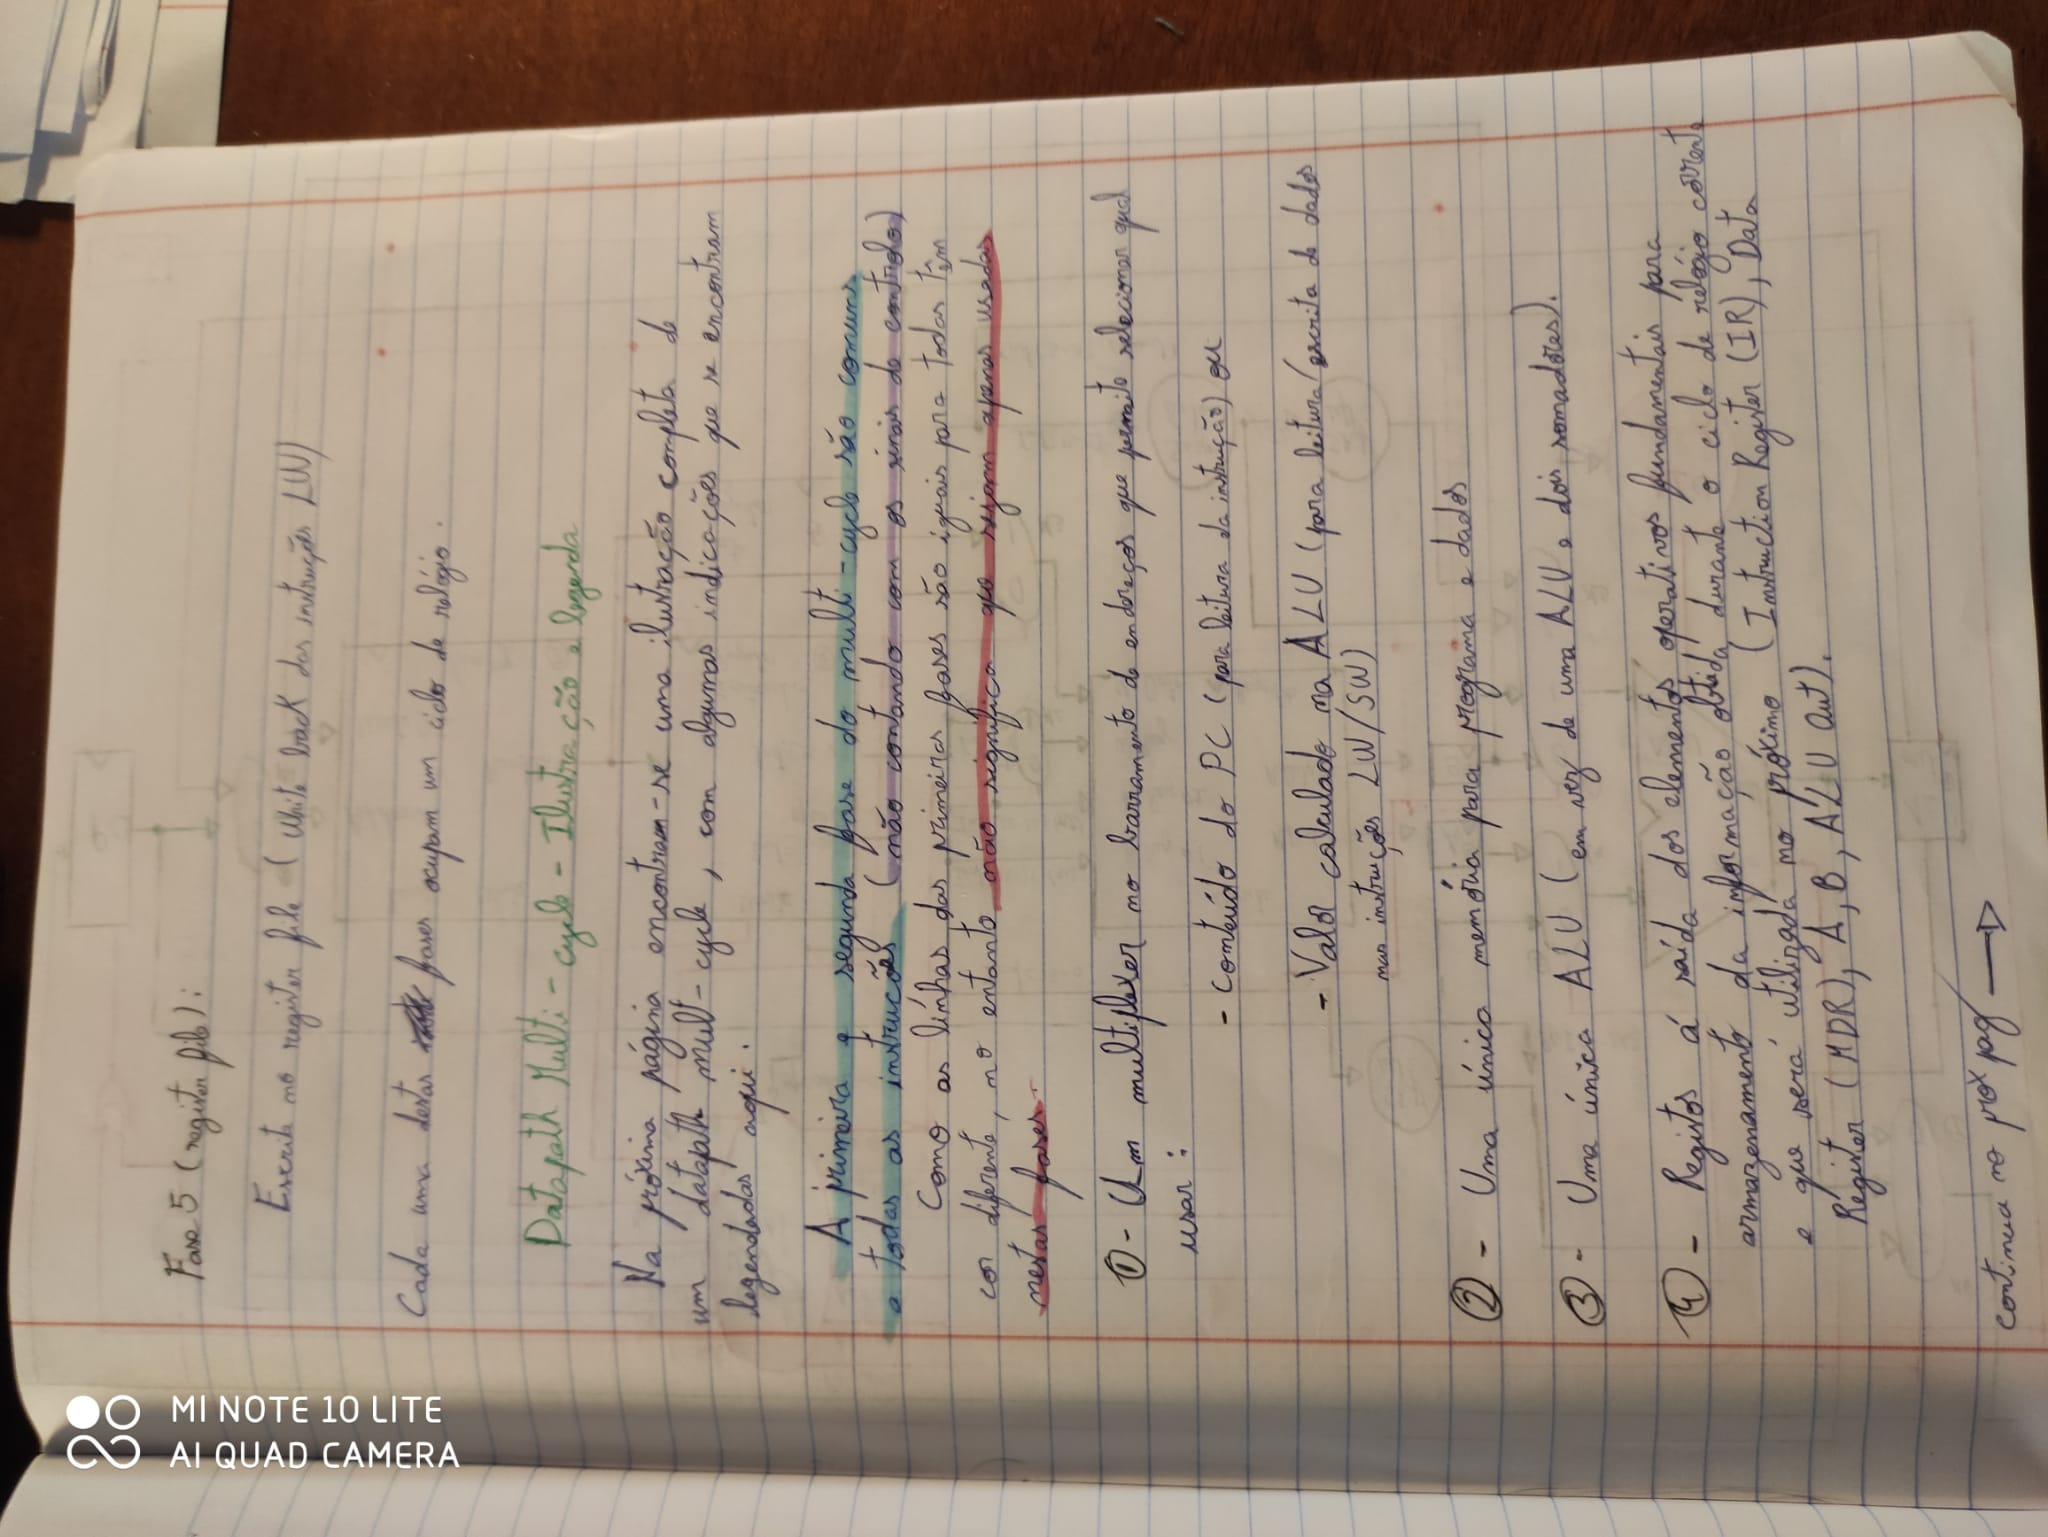 MI NOTE 10 LITE
AI QUAD CAMERA
Fase 5 (register file):
Escrita no register file (White back das instruções LW)
Cada uma destas fases ocupam um ciclo de relógio.
Datapath Multi-cycle - Ilustração e legenda
Na próxima página encontram-se uma ilustração completa de
um datapath mult-cycle, com algumas indicações que se encontram
legendadas aqui.
A primeira e segunda fase do multi-cycle são comuns
a todas as instruções (não contando com os sinais de controlo)
Como as linhas das primeiras fases são iguais para todas têm
cor diferente, no entanto não significa que sejam apenas usadas
nestas fases.
① - Um multiplexer no barramento de endereços que permite selecionar qual
usar:
- Conteúdo do PC (para leitura da instrução) ou
- Valor calculado na ALU (para leitura/escrita de dados
nas instruções LW/SW)
② - Uma única memória para programa e dados
③ - Uma única ALU (em vez de uma ALU e dois somadores).
④ - Registos á saída dos elementos operativos fundamentais para
armazenamento da informação obtida durante o ciclo de relógio corrente
e que será utilizada no próximo (Instruction Register (IR), Data
Register (MDR), A, B, ALU Out).
continua na próx pag →